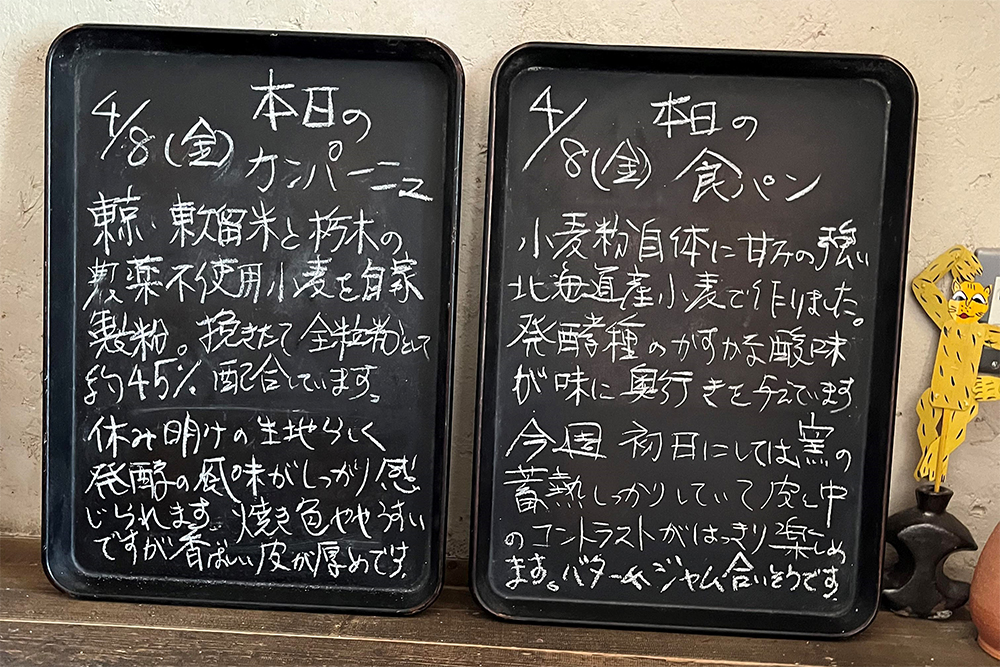 4/8(金) 本日の
カンパーニュ
東京・東久留米と栃木の
農薬不使用小麦を自家
製粉。挽きたて全粒粉として
約45%配合しています。
休み明けの生地らしく
発酵の風味がしっかり感
じられます。焼き色ややうすい
ですが香ばしい皮が厚めです。
4/8(金) 本日の
食パン
小麦粉自体に甘みの強い
北海道産小麦で作りました。
発酵種のかすかな酸味
が味に奥行きを与えています
今週初日にしては窯の
蓄熱しっかりしていて皮と中
のコントラストがはっきり楽しめ
ます。バターやジャム合いそうです。